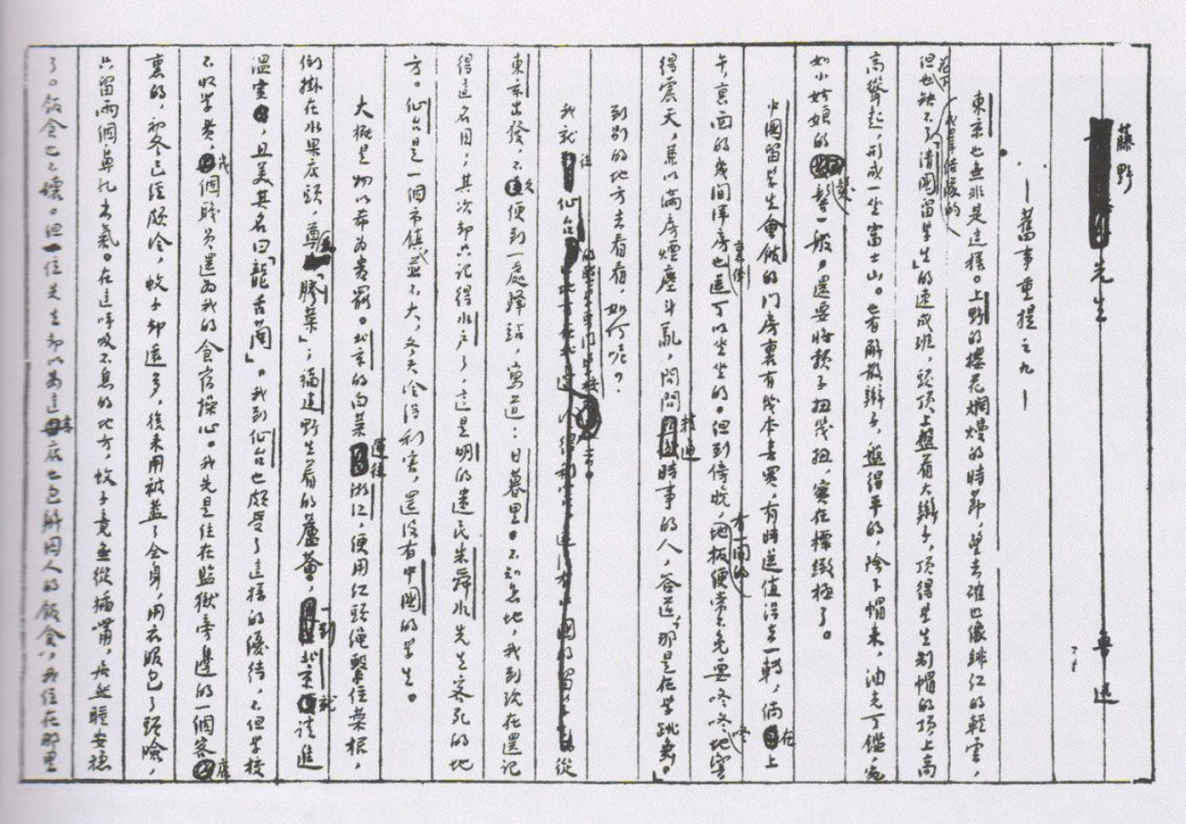 藤野先生
魯迅
—舊事重提之九—
東京也無非是這樣。上野的櫻花爛熳的時節，望去確也像緋紅的輕雲，
但花下也缺不了成羣結隊的「清國留學生」的速成班，頭頂上盤着大辮子，頂得學生制帽的頂上高
高聳起，形成一坐富士山。也有解散辮子，盤得平的，除下帽來，油光可鑑，宛
如小姑娘的髮髻一般，還要將頸子扭幾扭，實在標緻極了。
中國留學生會館的门房裏有幾本書買，有時還值得去一轉，倘在上
午，裏面的幾間洋房裏倒也還可以坐坐的。但到傍晚，有一間的地板便常不免要咚咚咚地響
得震天，兼以滿房煙塵斗亂，問問精通時事的人，答道，「那是在學跳舞。」
到别的地方去看看，如何呢？
我就往仙台的醫學專門學校去。從
東京出發，不久便到一處驛站，寫道：日暮里。不知怎地，我到現在還記
得這名目。其次却只記得水户了，這是明的遺民朱舜水先生客死的地
方。仙台是一個市鎮，並不大；冬天冷得利害；還沒有中國的學生。
大概是物以希為貴罷。北京的白菜運往浙江，便用紅頭繩繫住菜根，
倒掛在水果店頭，尊為「膠菜」；福建野生着的蘆薈，一到北京就請進
溫室，且美其名曰「龍舌蘭」。我到仙台也頗受了這樣的優待，不但學校
不收學費，幾個職員還為我的食宿操心。我先是住在監獄旁邊的一個客店
裏的，初冬已經頗冷，蚊子却還多，後來用被蓋了全身，用衣服包了頭臉，
只留兩個鼻孔出氣。在這呼吸不息的地方，蚊子竟無從插嘴，居然睡安穩
了。飯食也不壞。但一位先生却以為這客店也包辦囚人的飯食，我住在那里